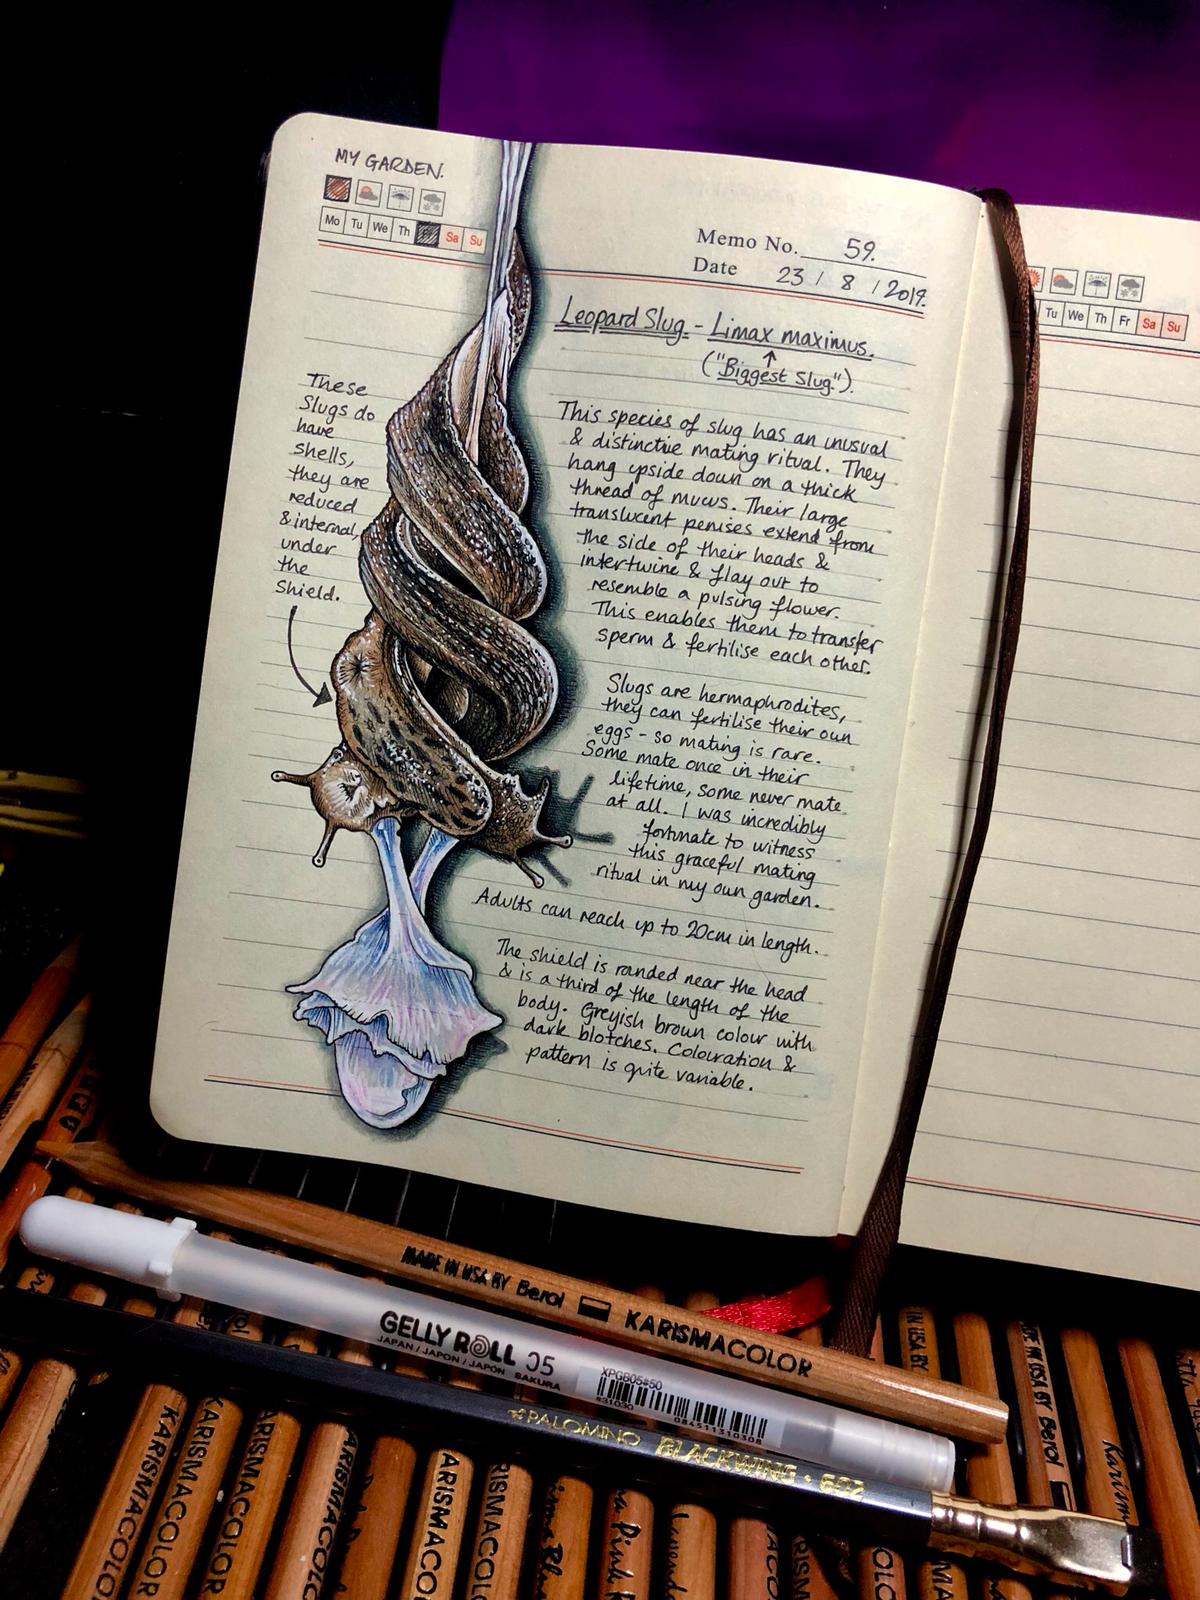 MY GARDEN.
Mo Tu We Th Sa Su
Memo No. 59.
Date 23 / 8 / 2019.
Leopard Slug - Limax maximus.
↑
("Biggest Slug").
These
Slugs do
have
shells,
they are
reduced
& internal,
under
the
Shield.
This species of slug has an unusual
& distinctive mating ritual. They
hang upside down on a thick
thread of mucus. Their large
translucent penises extend from
the side of their heads &
intertwine & flay out to
resemble a pulsing flower.
This enables them to transfer
sperm & fertilise each other.
Slugs are hermaphrodites,
they can fertilise their own
eggs - so mating is rare.
Some mate once in their
lifetime, some never mate
at all. I was incredibly
fortunate to witness
this graceful mating
ritual in my own garden.
Adults can reach up to 20cm in length.
The shield is rounded near the head
& is a third of the length of the
body. Greyish brown colour with
dark blotches. Colouration &
pattern is quite variable.
Tu We Th Fr Sa Su
MADE IN USA BY Berol KARISMACOLOR
GELLY ROLL 05
JAPAN / JAPON / JAPÓN SAKURA
XPGB05#50
831030
084511310308
PALOMINO BLACKWING • 602
KARISMACOLO
KARISMACOLOR
KARISMACOLOR
KARISMACOLO
ARISMACO
RISMACOL
IN USA BY
IN USA BY Berol
Karism